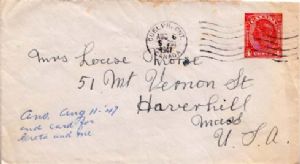 GUELPH, ONT
CANADA
Mrs Louise Morse
51 Mt Vernon St
Haverhill
Mass
U. S. A.
Ans. Aug 11-'47
and card for
and me